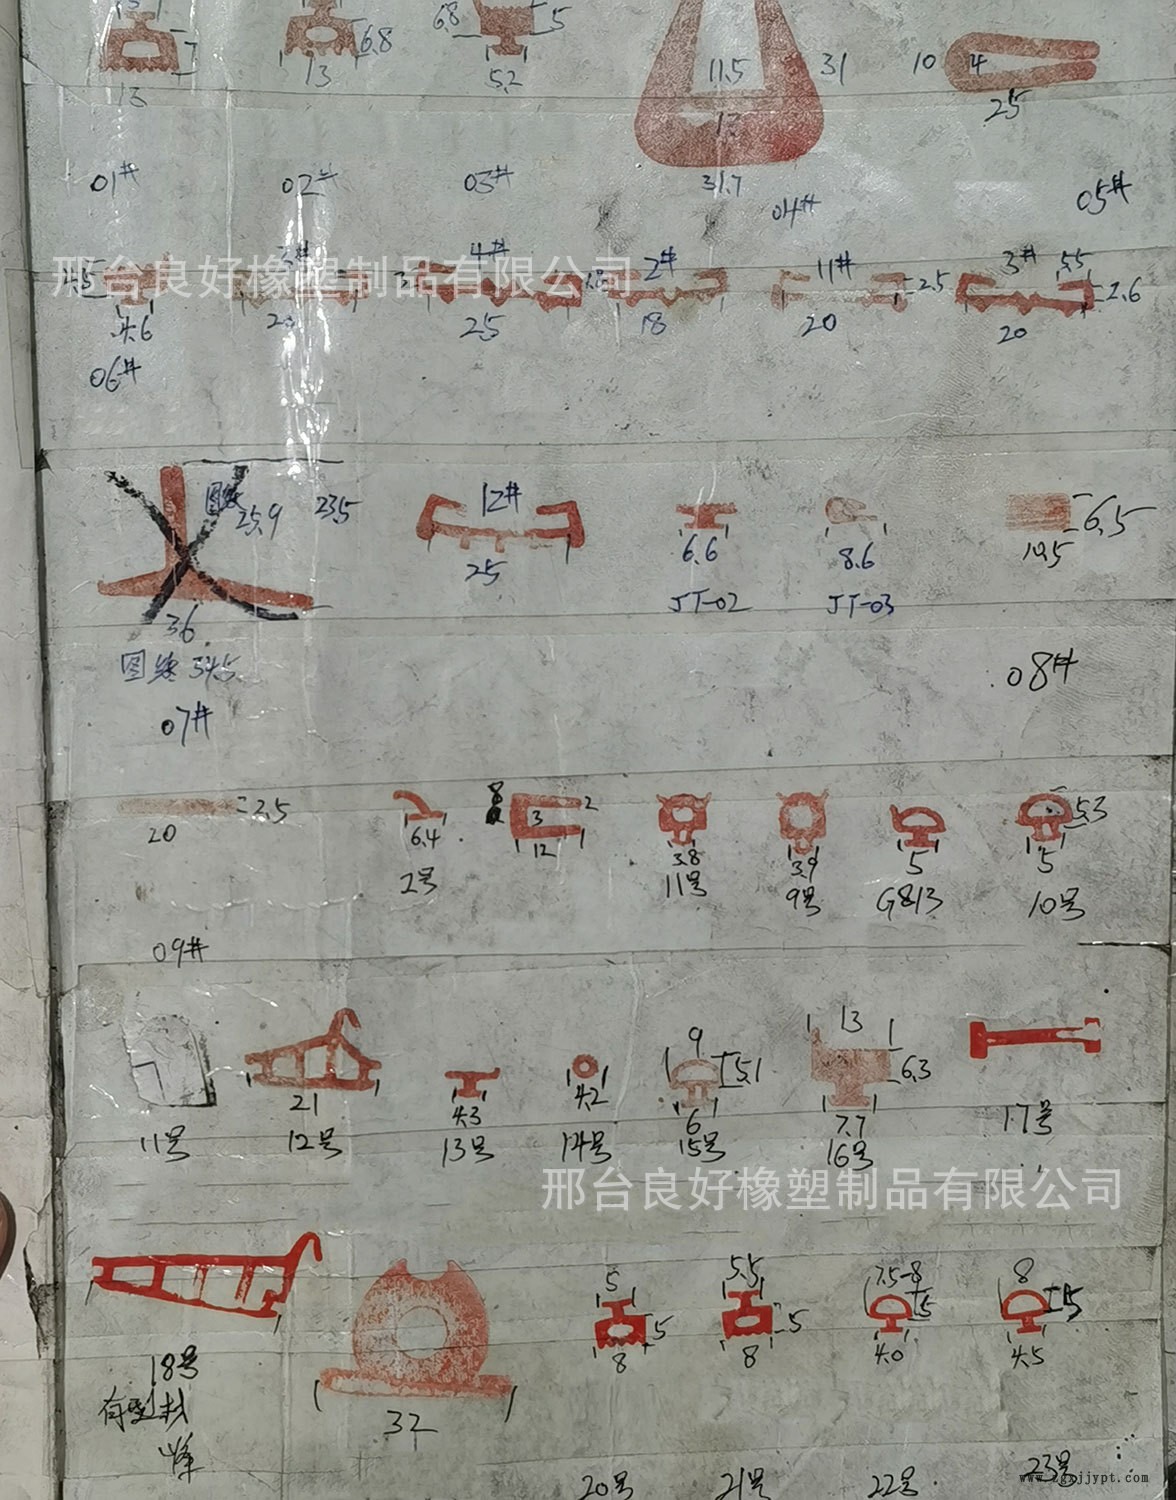 7
13
6.8
13
6.8
5
5.2
11.5
31
12
31.7
10
4
25
01#
02#
03#
04#
05#
邢台良好橡塑制品有限公司
4.6
06#
3#
4#
25
2#
18
11#
2.5
20
3#
5.5
2.6
20
25.9
23.5
36
图纸 34.5
07#
12#
25
6.6
JT-02
8.6
JT-03
6.5
10.5
08#
2.5
20
09#
6.4
2号
3
2
12
3.8
11号
3.9
9号
5
G813
5.3
5
10号
11号
21
12号
4.3
13号
4.2
14号
9
5.1
6
15号
13
6.3
7.7
16号
17号
邢台良好橡塑制品有限公司
18号
有型材
32
5
5
8
20号
5.5
5
8
21号
7.5-8
5
4.0
22号
8
5
4.5
23号